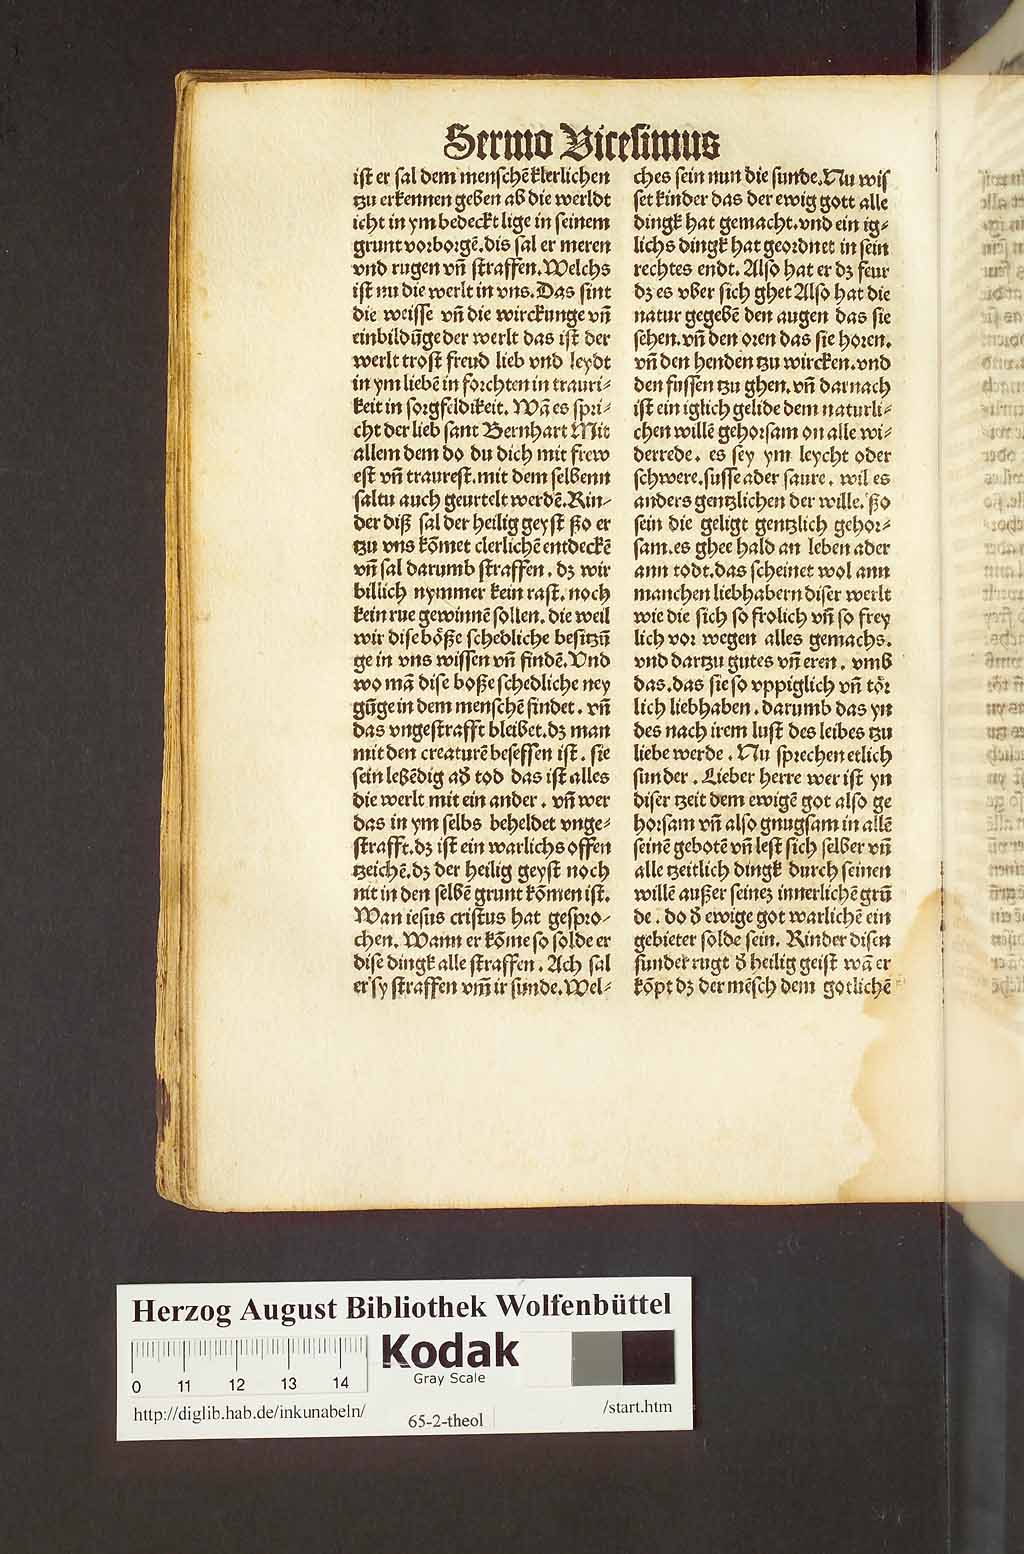 Sermo Vicesimus
ist er sal dem menschē klerlichen
tzu erkennen geben ab die werldt
icht in ym bedeckt lige in seinem
grunt vorborgē. dis sal er meren
vnd rugen vn̄ straffen. Welchs
ist nu die werlt in vns. Das sint
die weisse vn̄ die wirckunge vn̄
einbildūge der werlt das ist der
werlt trost freud lieb vnd leydt
in ym liebē in forchten in trauri⸗
keit in sorgfeldikeit. Wā es spri⸗
cht der lieb sant Bernhart Mit
allem dem do du dich mit frew
est vn̄ traurest. mit dem selbenn
saltu auch geurtelt werdē. Kin⸗
der diß sal der heilig geyst ßo er
tzu vns kōmet clerlichē entdeckē
vn̄ sal darumb straffen. dz wir
billich nymmer kein rast. noch
kein rue gewinnē sollen. die weil
wir dise böße schedliche besitzū
ge in vns wissen vn̄ findē. Vnd
wo mā dise boße schedliche ney
gūge in dem menschē findet. vn̄
das vngestrafft bleibet. dz man
mit den creaturē besessen ist. sie
sein lebēdig ad̕ tod das ist alles
die werlt mit ein ander. vn̄ wer
das in ym selbs beheldet vnge⸗
strafft. dz ist ein warlichs offen
tzeichē. dz der heilig geyst noch
nit in den selbē grunt kōmen ist.
Wan iesus cristus hat gespro⸗
chen. Wann er kōme so solde er
dise dingk alle straffen. Ach sal
er sy straffen vm̄ ir sunde. Wel⸗
ches sein nun die sunde. Nu wis
set kinder das der ewig gott alle
dingk hat gemacht. vnd ein ig⸗
lichs dingk hat geordnet in sein
rechtes endt. Also hat er dz feur
dz es vber sich ghet Also hat die
natur gegebē den augen das sie
sehen. vn̄ den oren das sie horen.
vn̄ den henden tzu wircken. vnd
den fussen tzu ghen. vn̄ darnach
ist ein iglich gelide dem naturli⸗
chen willē gehorsam on alle wi⸗
derrede. es sey ym leycht oder
schwere. susse ader saure. wil es
anders gentzlichen der wille. ßo
sein die geligt gentzlich gehor⸗
sam. es ghee hald an leben ader
ann todt. das scheinet wol ann
manchen liebhabern diser werlt
wie die sich so frolich vn̄ so frey
lich vor wegen alles gemachs.
vnd dartzu gutes vn̄ eren. vmb
das. das sie so vppiglich vn̄ tör
lich liebhaben. darumb das yn
des nach irem lust des leibes tzu
liebe werde. Nu sprechen etlich
sunder. Lieber herre wer ist yn
diser tzeit dem ewigē got also ge
horsam vn̄ also gnugsam in allē
seinē gebotē vn̄ lest sich selber vn̄
alle tzeitlich dingk durch seinen
willē außer seinez innerlichē grū
de. do d̕ ewige got warlichē ein
gebieter solde sein. Kinder disen
sunder rugt d̕ heilig geist wā er
kōpt dz der mēsch dem gotlichē
Herzog August Bibliothek Wolfenbüttel
Kodak
Gray Scale
0 11 12 13 14
http://diglib.hab.de/inkunabeln/
65-2-theol
/start.htm